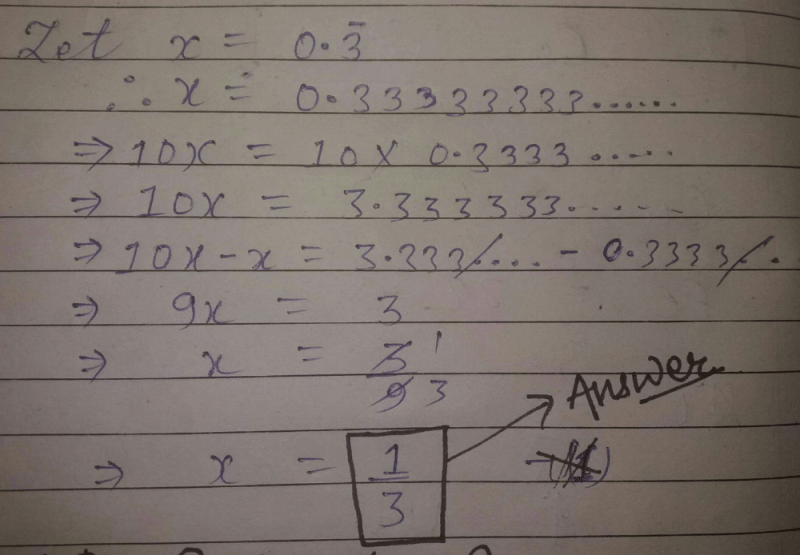 Let x = 0.3̄
∴ x = 0.33333333......
⇒ 10x = 10 × 0.3333.....
⇒ 10x = 3.333333......
⇒ 10x - x = 3.333/.... - 0.3333/..
⇒ 9x = 3
⇒ x = 3/9 1 3
Answer
⇒ x = 1/3